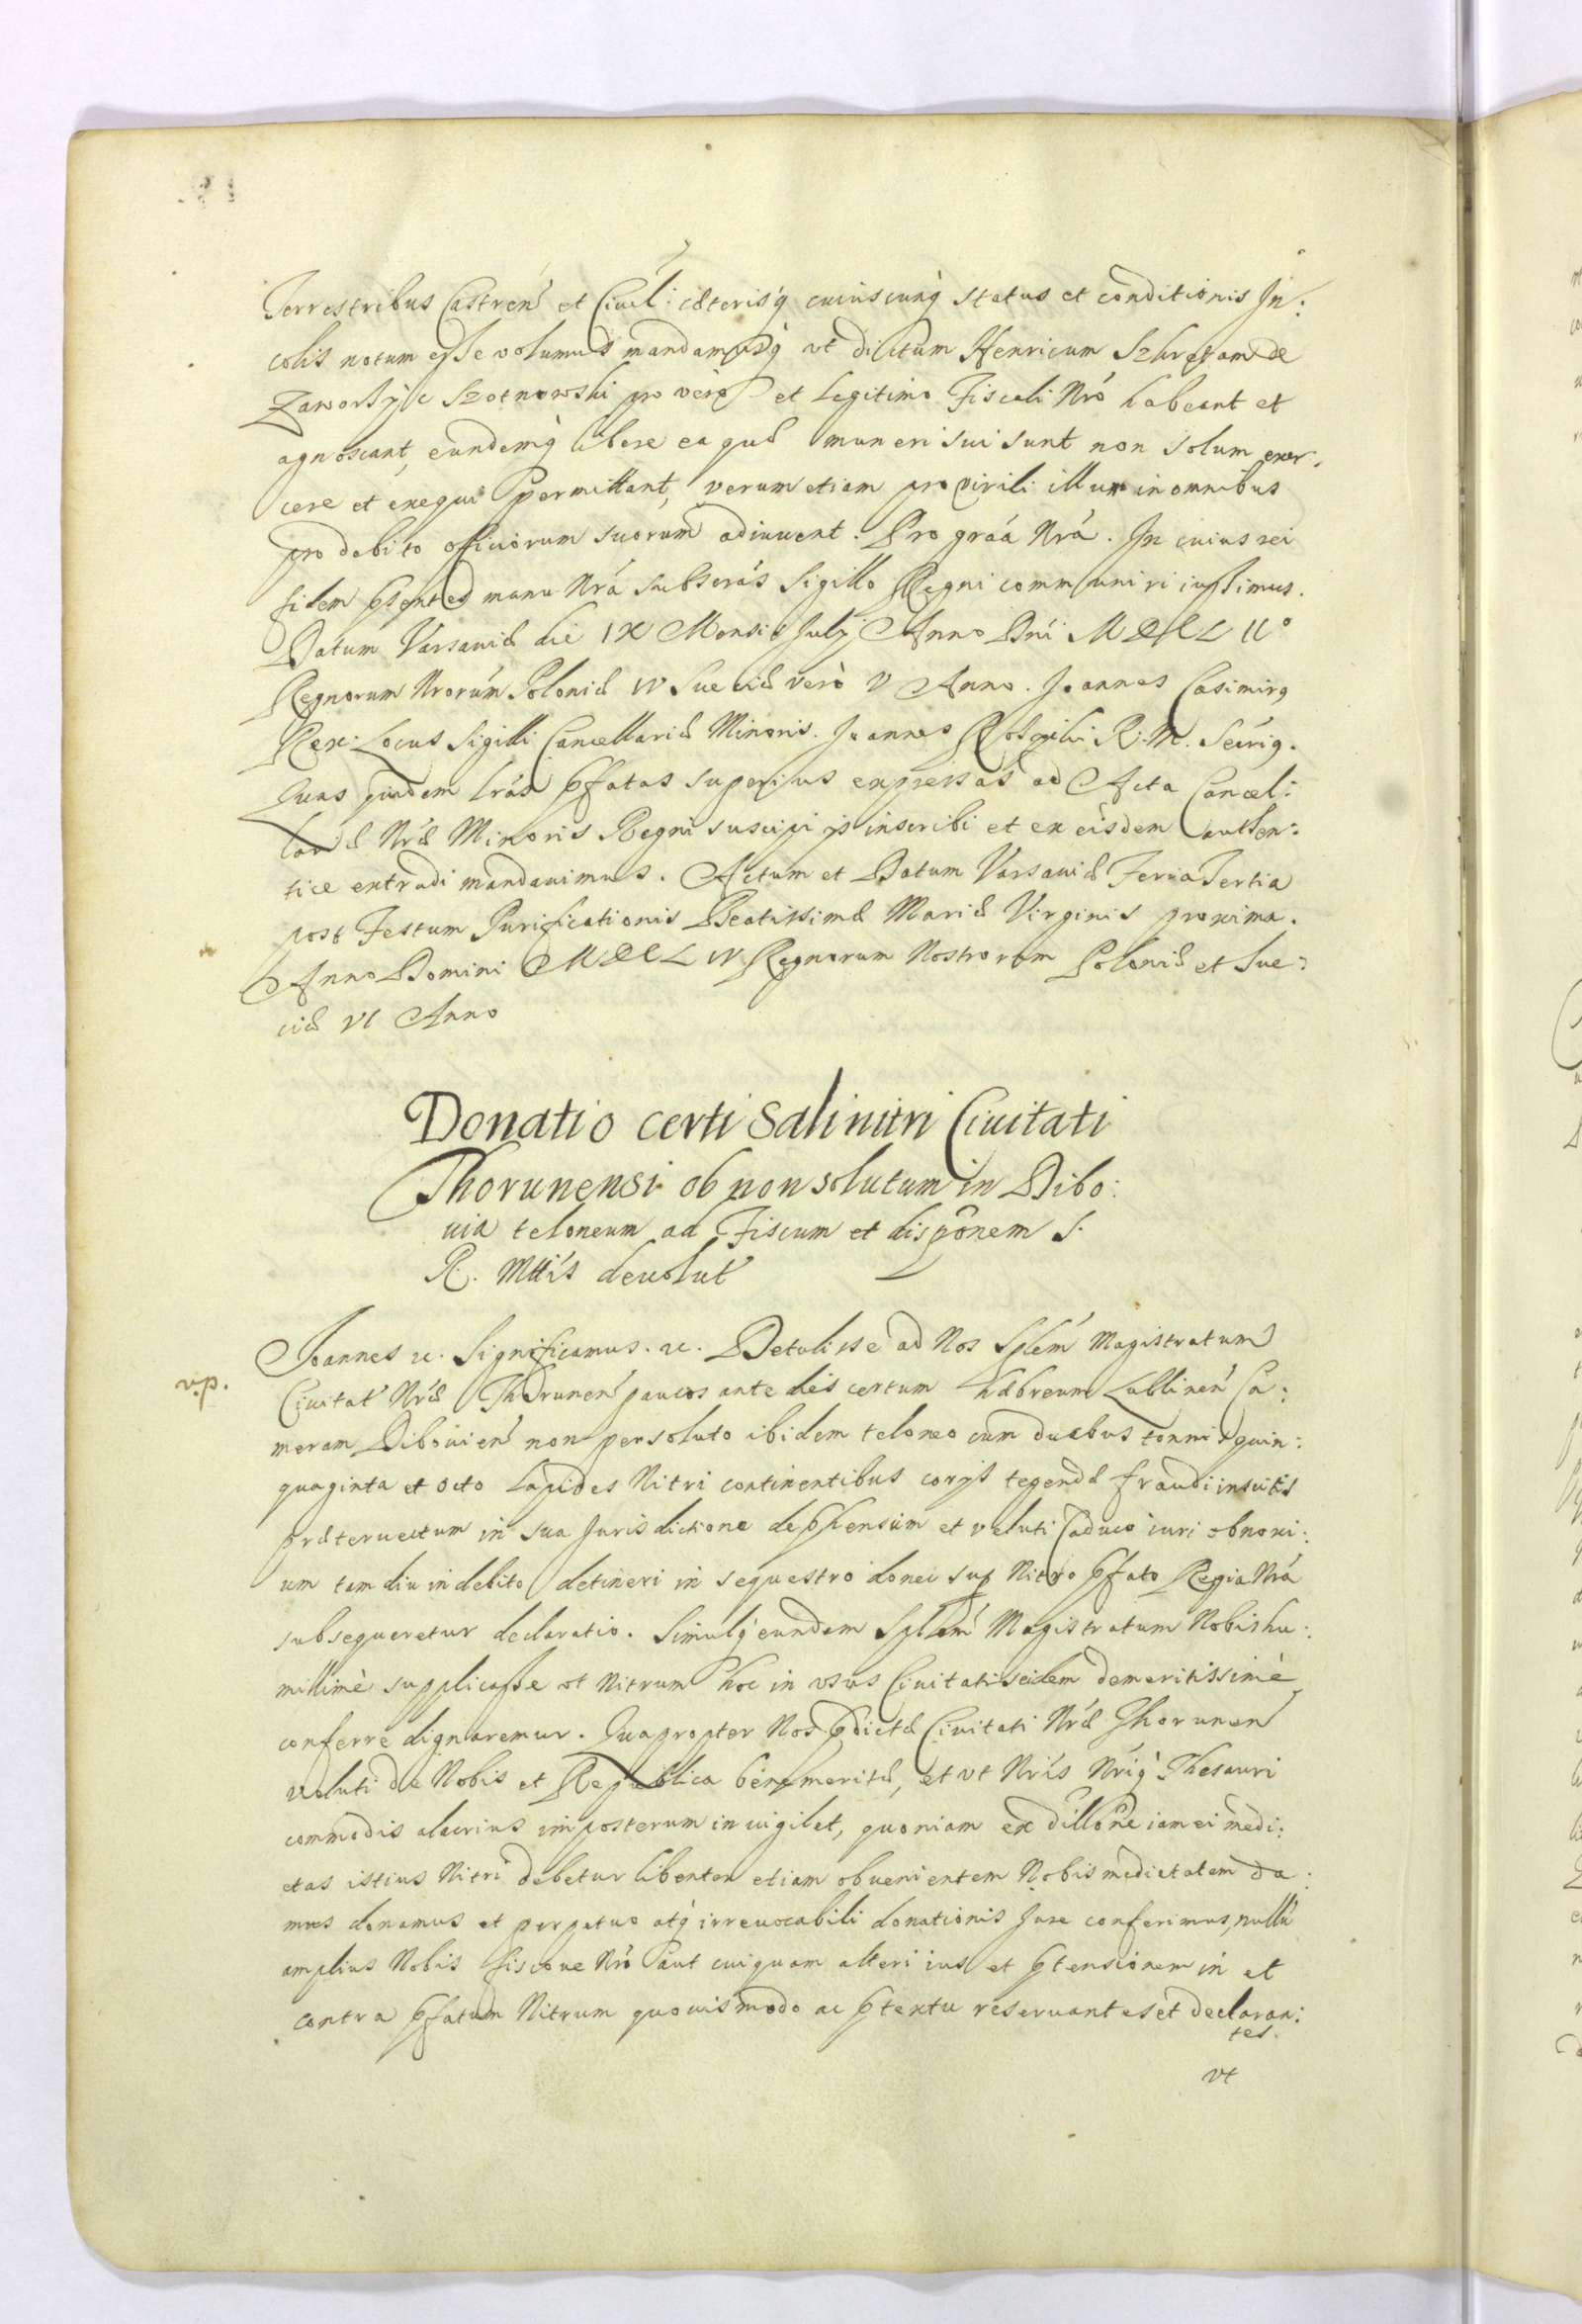 Terrestribus Castren̄ et Civil: cæterisq́ cuiuscunq́ status et conditionis In:
colis notum esse volumus mandamusq́ vt dictum Henricum de
pro vero et Legitimo Fiscali Nró habeant et
agnoscant, eundemq́ libere ea quæ muneri sui sunt non solum exer:
cere et exequi permittant, verum etiam pro virili illum in omnibus
pro debito officiorum suorum adiuuent. Pro graá Nrá. In cuius rei
fidem pſentes manu Nrá Sigillo Regni communiri iussimus.
Datum Varsauiæ die IX Mensis Julij Anno Dní MDCLII°
Regnorum Nrorúm Poloniæ IV Sueciæ verò V Anno. Joannes Casimirq
Rex. Locus Sigilli Cancellariæ Minoris. Joannes R. M. Secrig.
Quas quidem lrás pfatas superius expressas ad Acta Cancel:
lariæ Nrǽ Minoris Regni suscipi inscribi et ex eisdem authen:
tice extradi mandauimus. Actum et Datum Varsauiæ Feria Tertia
post Festum Purificationis Beatissimæ Mariæ Virginis proxima.
Anno Domini MDCLIV Regnorum Nostrorum Poloniæ et Sue:
ciæ VI Anno
Donatio certi Salinitri Ciuitati
Thorunensi ob non solutum in Dibo:
uia teloneum ad Fiscum et dispônem S.
R. Mttís deuolut́
Joannes &c. Significamus. &c. Detulisse ad Nos Splém Magistratum
v.p.
Ciuitat́ Nrǽ Thorunen̄ paucos ante dies certum Hæbreum Lublinen̄ Ca:
meram Dibouien̄ non persoluto ibidem teloneo cum duabus tonnis quin:
quaginta et octo Lapides Nitri continentibus corijs tegendæ fraudi insutis
præteruectum in sua Jurisdictione depħensum et veluti Caduco iuri obnoxi:
um tam diu in debito detineri in sequestro donec sup Nitro pfato Regia Nrá
subsequeretur declaratio. Simulq́ eundem Splém Magistratum Nobis hu:
millimè supplicasse vt Nitrum hoc in vsus Ciuitatis eidem
conferre dignaremur. Quapropter Nos pdictæ Ciuitati Nrǽ Thorunen̄
veluti de Nobis et Republica benemeritæ, et vt Nrís Nríq́ Thesauri
commodis alacrius imposterum inuigilet, quoniam ex iam ei medi:
etas istius Nitri debetur libenter etiam obuenientem Nobis medietatem da:
mus donamus et perpetuo atq́ irreuocabili donationis Jure conferimus, nullú
amplius Nobis fiscoue Nró aut cuiquam alteri ius et ptensionem in et
contra pfatum Nitrum quouismodo ac ptextu reseruantes et declaran:
tes.
vt